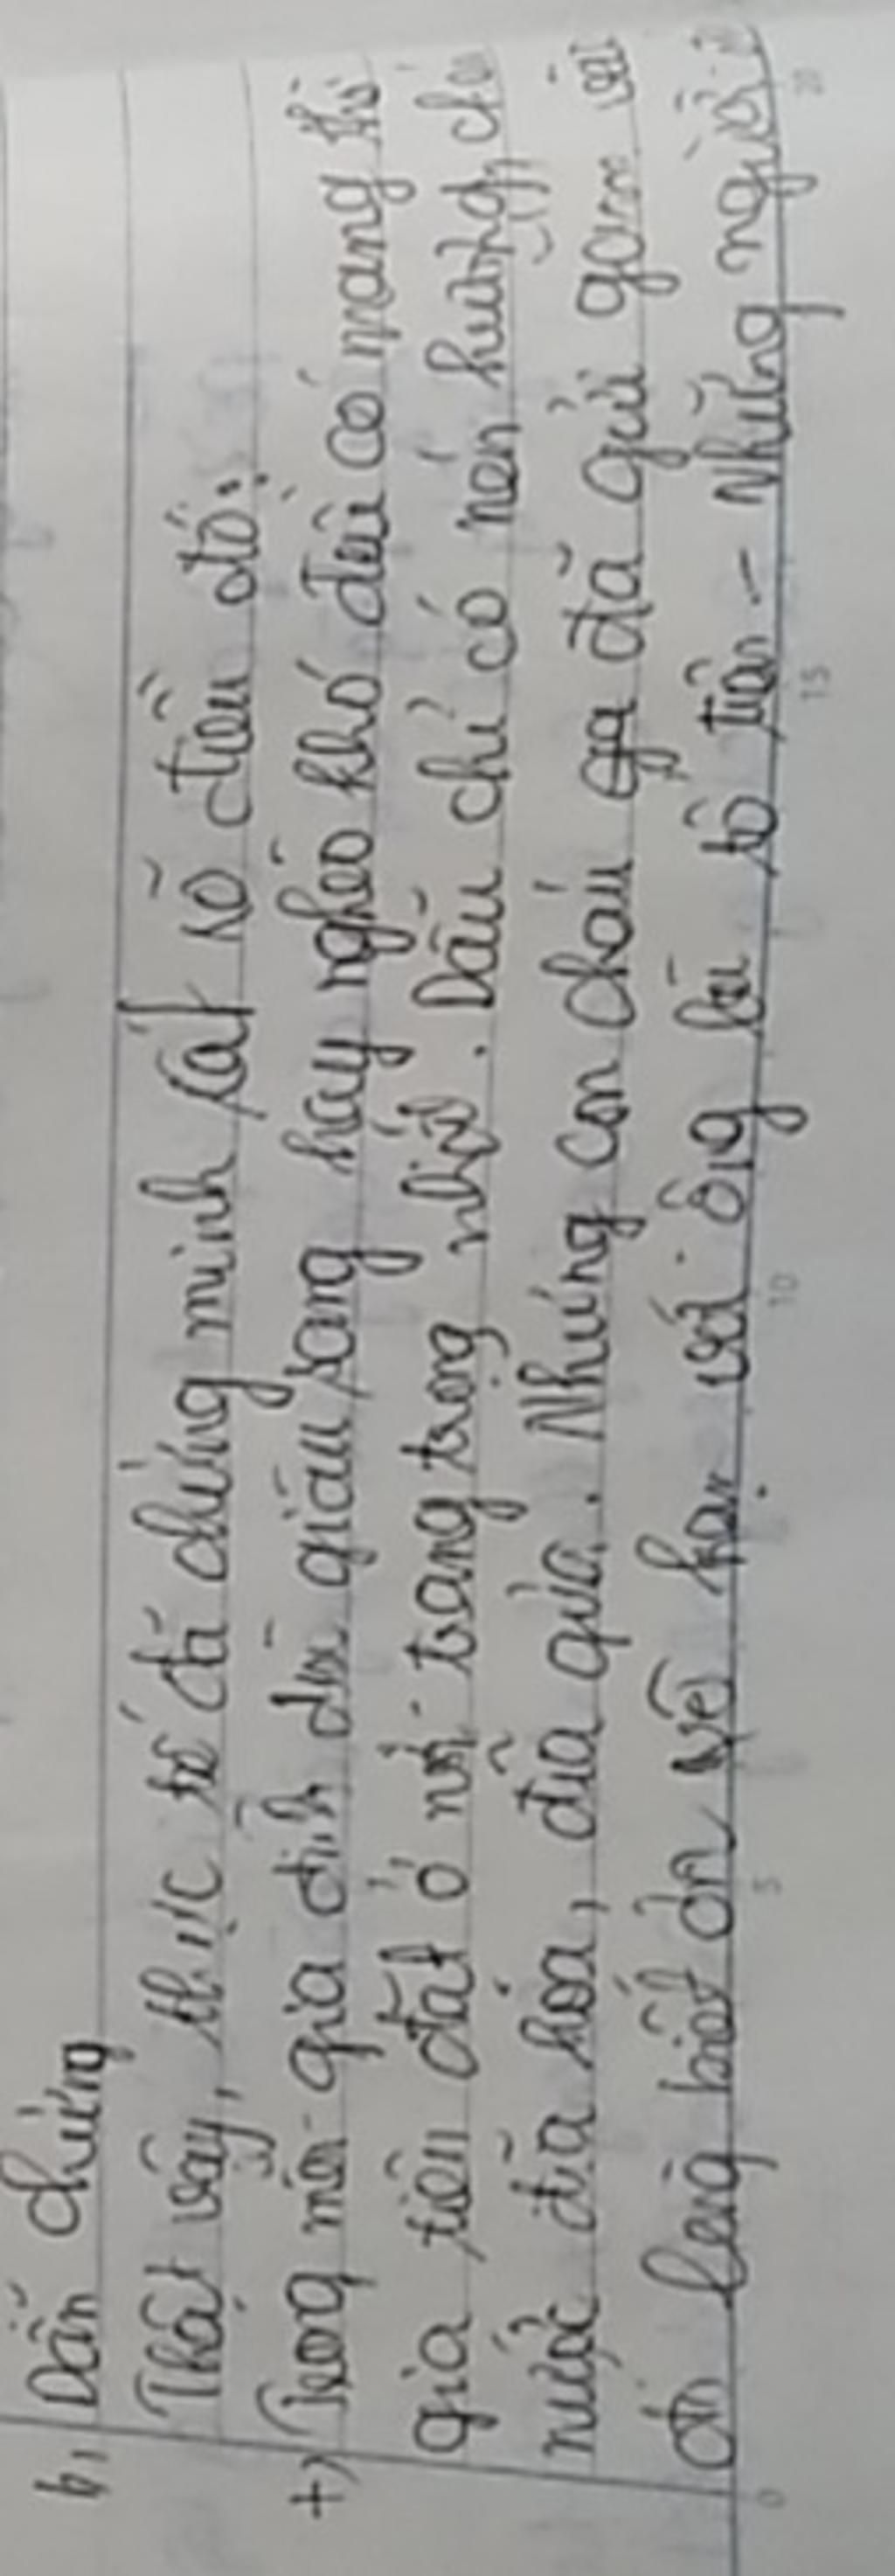 b, Dẫn chứng
Thật vậy, thực tế đã chứng minh rất rõ điều đó:
+) Trong mỗi gia đình dù giàu sang hay nghèo khó đều có mang thờ
gia tiên đặt ở nơi trang trọng nhất. Dẫu chỉ có nén hương, chén
nước đĩa hoa, đĩa quả. Nhưng con cháu đã gửi gam vào
đó lòng biết ơn vô hạn với ông bà tổ tiên - Những người
0 5 10 15 20